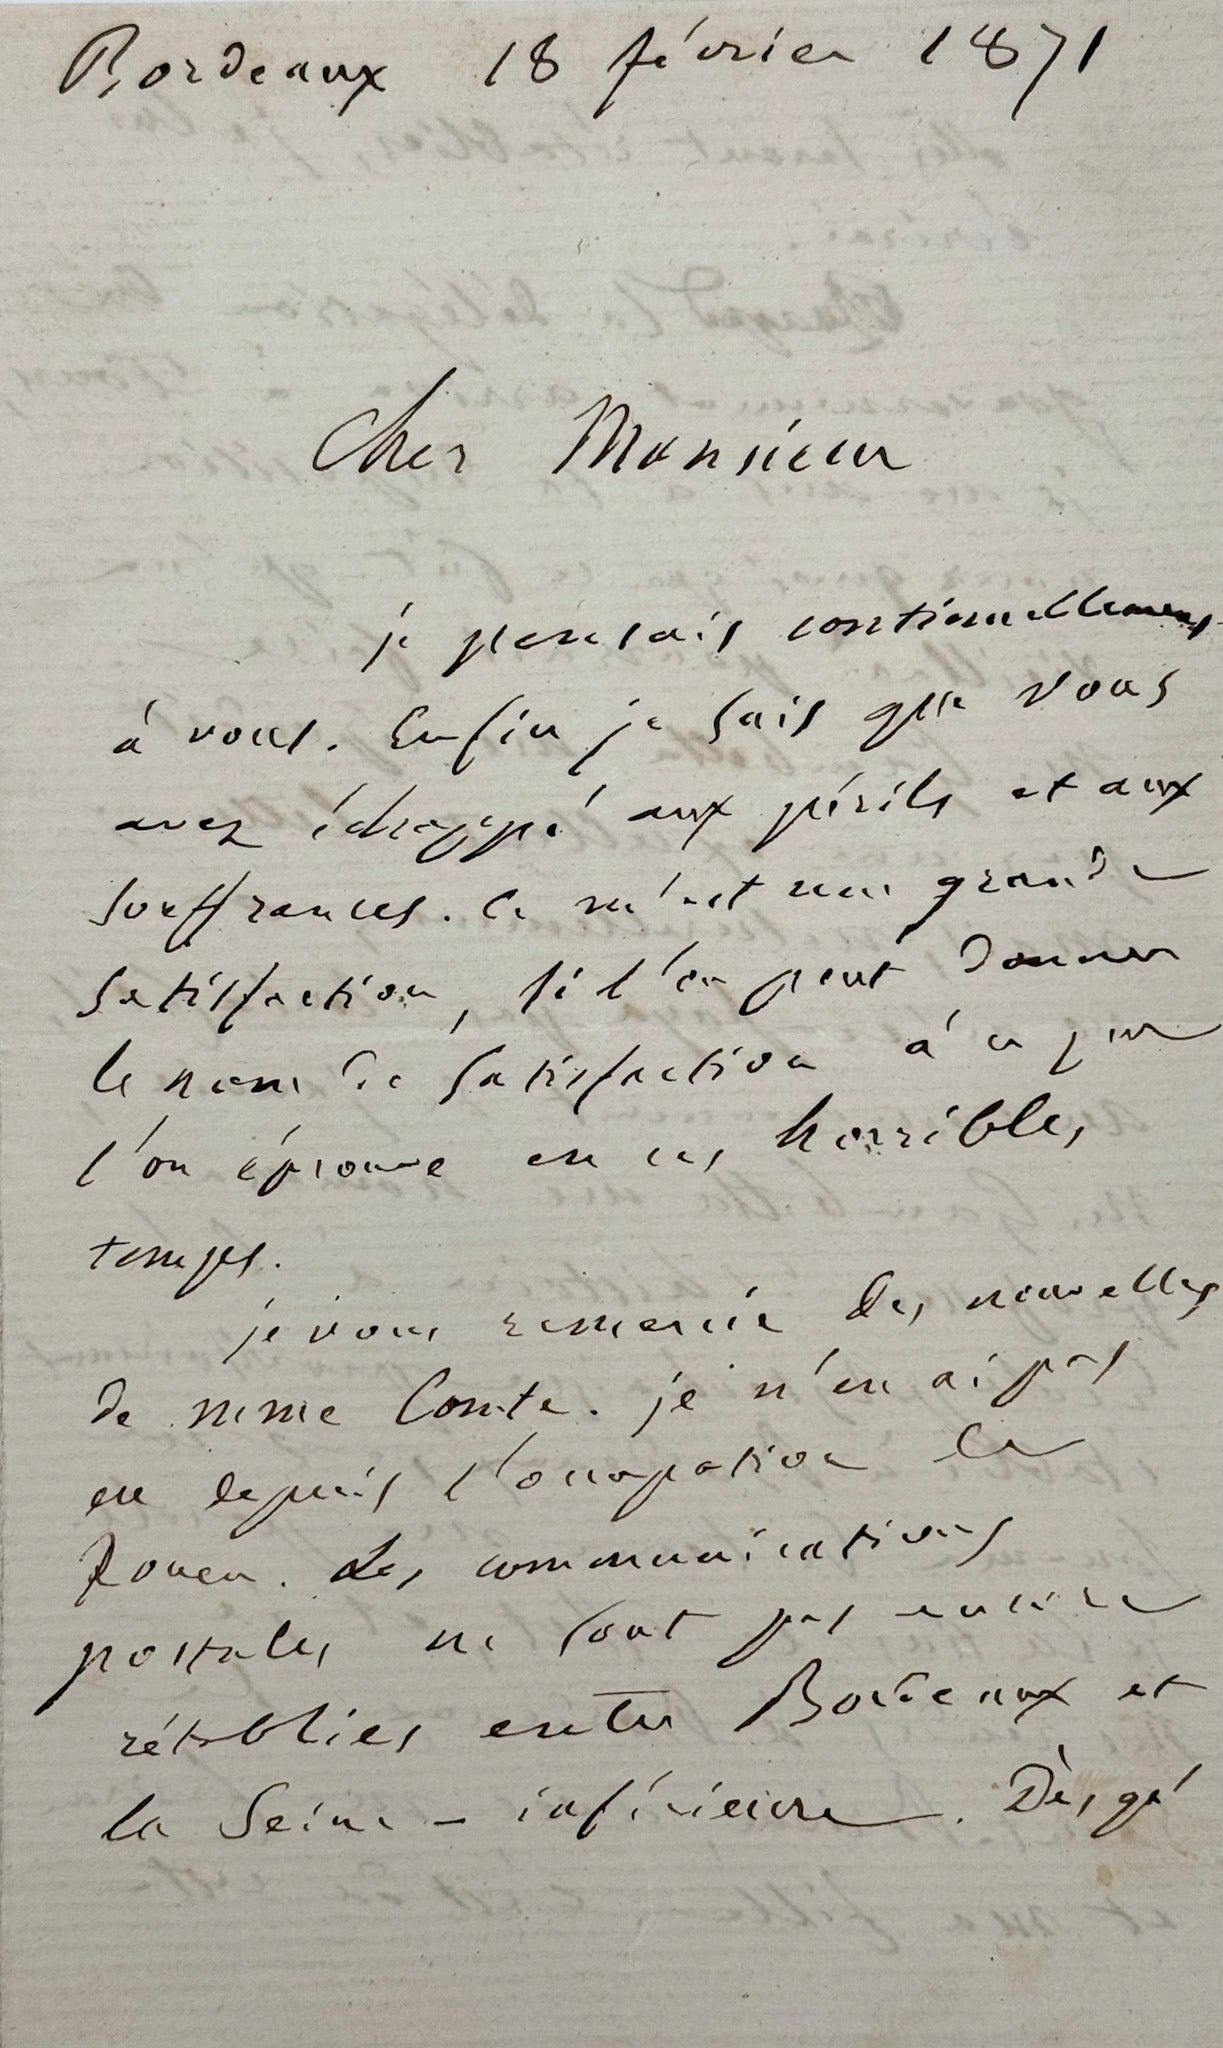 Bordeaux 18 février 1871
Cher Monsieur
je pensais continuellement
à vous. Enfin je sais que vous
avez échappé aux périls et aux
souffrances. Ce m'est une grande
satisfaction, si l'on peut donner
le nom de satisfaction à ce que
l'on éprouve en ces horribles
temps.
je vous remercie des nouvelles
de mme Comte. je n'en ai pas
eu depuis l'occupation de
Rouen. Les communications
postales ne sont pas encore
rétablies entre Bordeaux et
la Seine-inférieure. Dès qu'